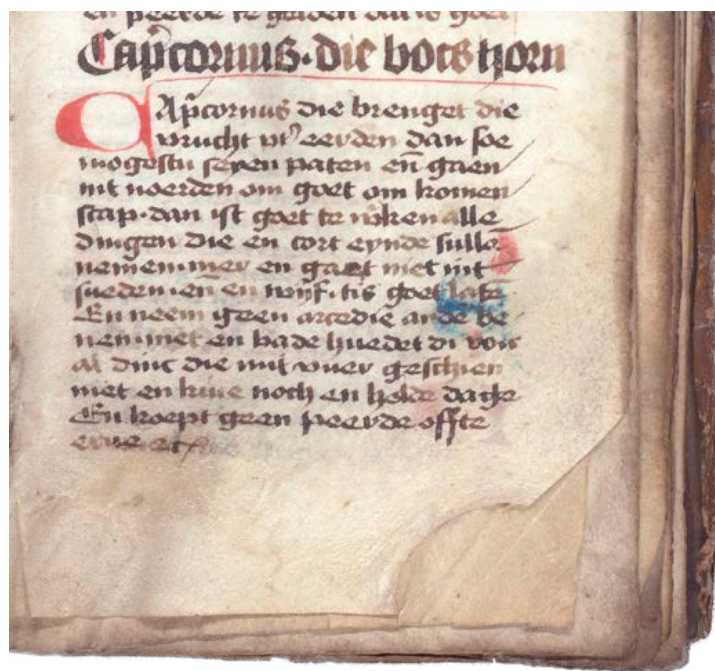 en peerde te gelden dat is goet
Cap̃cornus·die bocs horn
CAp̃cornus die brenget die
vrucht vt' eerden dan soe
mogestu seyen paten en̄ gaen
int noerden om goet om komen
scap·dan ist goet te w̃ken alle
dingen die en cort eynde sullē
nemen·mer en gaet niet int
sueden·en̄ en wijf·tis goet late
En neem geen arcedie and̄e be
nem·met en bade huedet di voir
al dinc die mit vuer geschien
met en kiue noch en holde dage
En koept geen peerde offte
erue etc̃